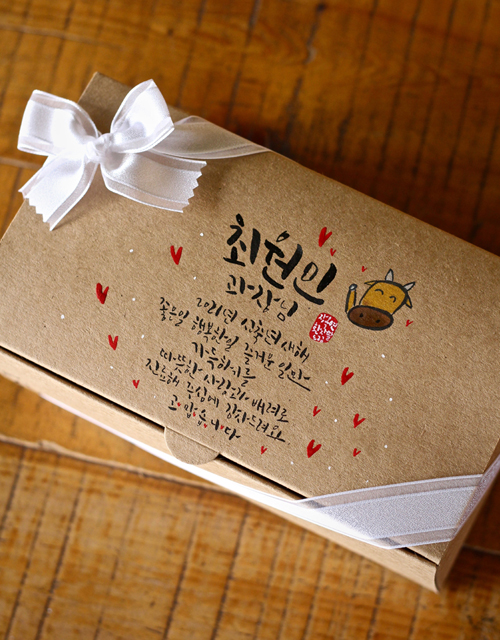 최원인
과장님
2021년 신축년 새해
좋은일 행복한일 즐거운 일만
가득하시길
따뜻한 사랑과 배려로
진료해 주심에 감사드려요
고맙습니다